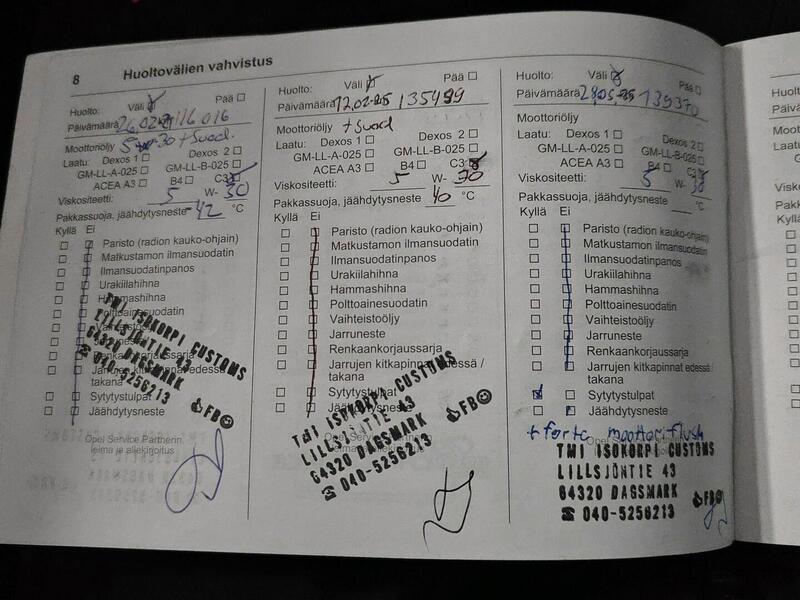 8 Huoltovälien vahvistus
Huolto: Väli Pää
Päivämäärä 116 016
Moottoriöljy
Laatu: Dexos 1 Dexos 2
GM-LL-A-025 GM-LL-B-025
ACEA A3 B4 C3
Viskositeetti: 5 W- 30
Pakkassuoja, jäähdytysneste -42 °C
Kyllä Ei
Paristo (radion kauko-ohjain)
Matkustamon ilmansuodatin
Ilmansuodatinpanos
Urakiilahihna
Hammashihna
Polttoainesuodatin
Vaihteistoöljy
Jarruneste
Renkaankorjaussarja
Jarrujen kitkapinnat edessä /
takana
Sytytystulpat
Jäähdytysneste
TMI ISOKORPI CUSTOMS
LILLSJÖNTIE 43
64320 DAGSMARK
☎ 040-5256213
FB
Opel Service Partnerin,
leima ja allekirjoitus
Huolto: Väli Pää
Päivämäärä 12.02-25 135499
Moottoriöljy + Suod
Laatu: Dexos 1 Dexos 2
GM-LL-A-025 GM-LL-B-025
ACEA A3 B4 C3
Viskositeetti: 5 W- 30
Pakkassuoja, jäähdytysneste 40 °C
Kyllä Ei
Paristo (radion kauko-ohjain)
Matkustamon ilmansuodatin
Ilmansuodatinpanos
Urakiilahihna
Hammashihna
Polttoainesuodatin
Vaihteistoöljy
Jarruneste
Renkaankorjaussarja
Jarrujen kitkapinnat edessä /
takana
Sytytystulpat
Jäähdytysneste
TMI ISOKORPI CUSTOMS
LILLSJÖNTIE 43
64320 DAGSMARK
☎ 040-5256213
FB
Huolto: Väli Pää
Päivämäärä 28.05-25 139370
Moottoriöljy
Laatu: Dexos 1 Dexos 2
GM-LL-A-025 GM-LL-B-025
ACEA A3 B4 C3
Viskositeetti: 5 W- 30
Pakkassuoja, jäähdytysneste °C
Kyllä Ei
Paristo (radion kauko-ohjain)
Matkustamon ilmansuodatin
Ilmansuodatinpanos
Urakiilahihna
Hammashihna
Polttoainesuodatin
Vaihteistoöljy
Jarruneste
Renkaankorjaussarja
Jarrujen kitkapinnat edessä /
takana
Sytytystulpat
Jäähdytysneste
+ forte moottori flush
TMI ISOKORPI CUSTOMS
LILLSJÖNTIE 43
64320 DAGSMARK
☎ 040-5256213
FB